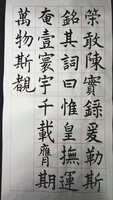 榮敢陳實錄爰勒斯
銘其詞曰惟皇撫運
奄壹寰宇千載膺期
萬物斯覩